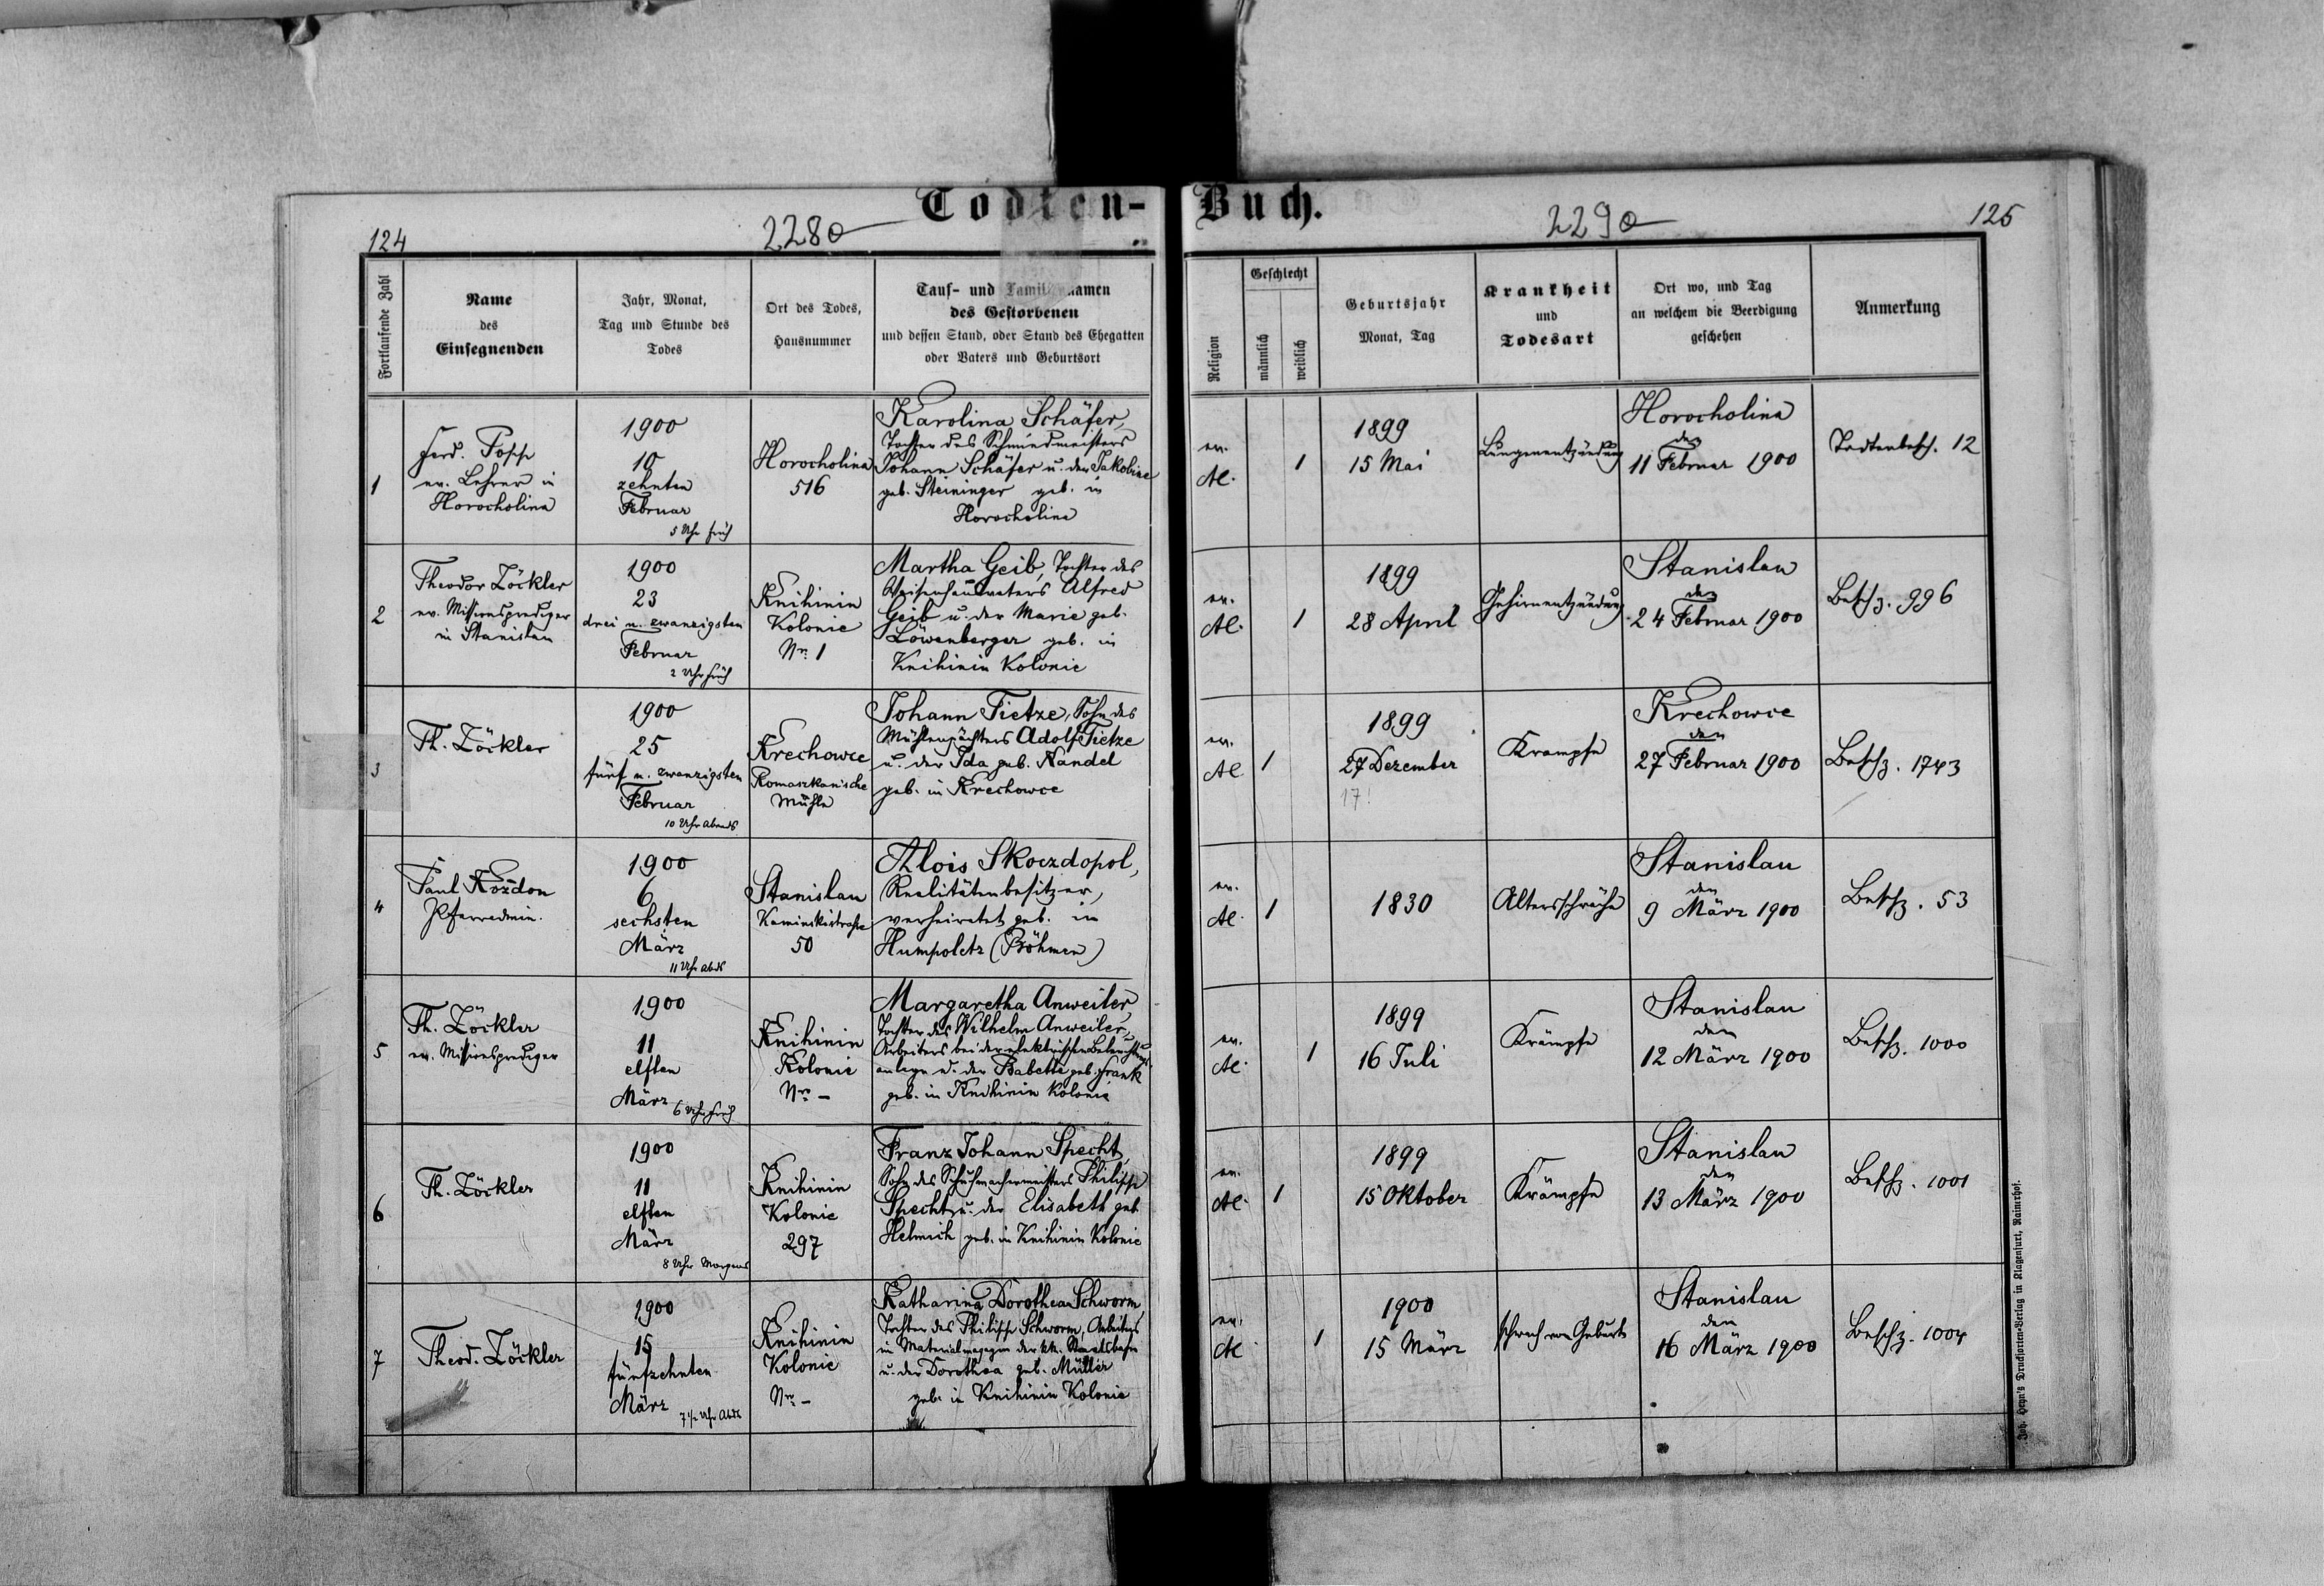 Todten-
Buch.
124
2280
2290
125
Fortlaufende Zahl
Name
des
Einsegnenden
Jahr, Monat,
Tag und Stunde des
Todes
Ort des Todes,
Hausnummer
Tauf- und Familiennamen
des Gestorbenen
und dessen Stand, oder Stand des Ehegatten
oder Vaters und Geburtsort
Religion
Geschlecht
männlich
weiblich
Geburtsjahr
Monat, Tag
Krankheit
und
Todesart
Ort wo, und Tag
an welchem die Beerdigung
geschehen
Anmerkung
1
Ferd. Popp
ev. Lehrer in
Horocholina
1900
10
zehnten
Februar
5 Uhr früh
Horocholina
516
Karolina Schäfer,
Tochter des Schmiedmeisters
Johann Schäfer u. der Jakobine
geb. Steininger geb. in
Horocholina
ev.
AC.
1
1899
15 Mai
Lungenentzündung
Horocholina
den
11 Februar 1900
Todtenbesch. 12
2
Theodor Zöckler
ev. Missionsprediger
in Stanislau
1900
23
drei u. zwanzigsten
Februar
2 Uhr früh
Knihinin
Kolonie
Nr. 1
Martha Geib, Tochter des
Waisenhausvaters Alfred
Geib u. der Marie geb.
Löwenberger geb. in
Knihinin Kolonie
ev.
AC.
1
1899
28 April
Gehirnentzündung
Stanislau
den
24 Februar 1900
Beschz. 996
3
Th. Zöckler
1900
25
fünf u. zwanzigsten
Februar
10 Uhr Abends
Krechowce
Romaszkanische
Mühle
Johann Tietze, Sohn des
Mühlenpächters Adolf Tietze
u. der Ida geb. Nandel
geb. in Krechowce
ev.
AC.
1
1899
27 Dezember
17!
Krampfe
Krechowce
den
27 Februar 1900
Beschz. 1743
4
Paul Kozdon
Pfarradmin.
1900
6
sechsten
März
11 Uhr Abds
Stanislau
Kaminskistrasse
50
Alois Skoczdopol,
Realitätenbesitzer,
verheiratet geb. in
Humpoletz (Böhmen)
ev.
AC.
1
1830
Altersschwäche
Stanislau
den
9 März 1900
Beschz. 53
5
Th. Zöckler
ev. Missionsprediger
1900
11
elften
März
6 Uhr früh
Knihinin
Kolonie
Nr. –
Margaretha Anweiler,
Tochter des Wilhelm Anweiler,
Arbeiters bei der elektrischen Beleuchtungs-
anlage u. der Babette geb. Frank
geb. in Knihinin Kolonie
ev.
AC.
1
1899
16 Juli
Krämpfe
Stanislau
den
12 März 1900
Beschz. 1000
6
Th. Zöckler
1900
11
elften
März
8 Uhr Morgens
Knihinin
Kolonie
297
Franz Johann Specht,
Sohn des Schuhmachermeisters Philipp
Specht u. der Elisabeth geb.
Helmich geb. in Knihinin Kolonie
ev.
AC.
1
1899
15 Oktober
Krämpfe
Stanislau
den
13 März 1900
Beschz. 1001
7
Theod. Zöckler
1900
15
fünfzehnten
März
7 1/2 Uhr Abds
Knihinin
Kolonie
Nr. –
Katharina Dorothea Schworm,
Tochter des Philipp Schworm, Arbeiters
in Materialmagazin der kk. Staatsbahn
u. der Dorothea geb. Müller
geb. in Knihinin Kolonie
ev.
AC.
1
1900
15 März
schwach von Geburt
Stanislau
den
16 März 1900
Beschz. 1004
Joh. Heyn's Drucksorten-Verlag in Klagenfurt, Rainerhof.